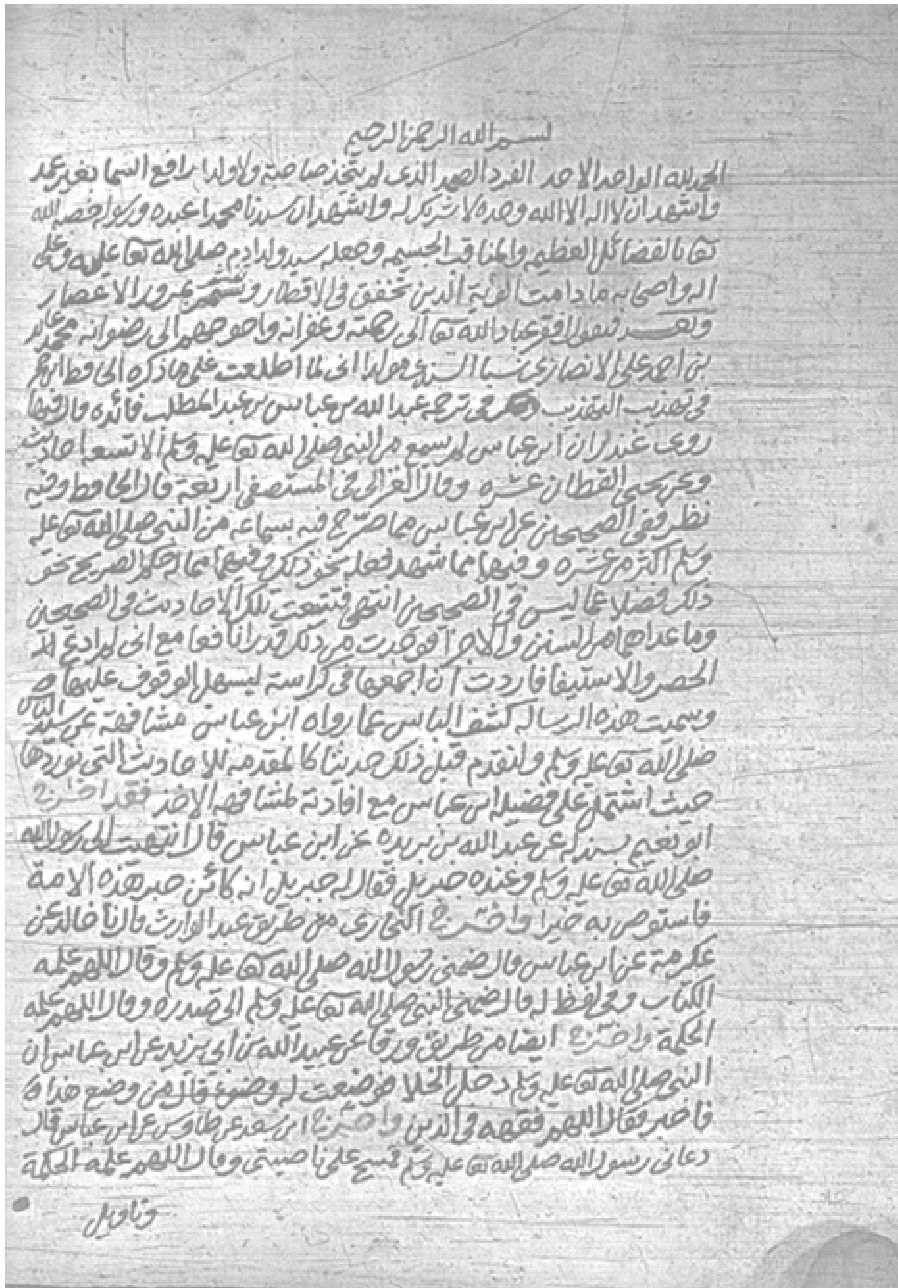 بسم الله الرحمن الرحيم
الحمد لله الواحد الاحد الفرد الصمد الذي لم يتخذ صاحبة ولا ولدا رافع السما بغير عمد
واشهد ان لا اله الا الله وحده لا شريك له واشهد ان سيدنا محمدا عبده ورسوله خصه الله
تعا بالفضائل العظيم والمناقب الجسيم وجعله سيد ولد ادم صلى الله تعا عليه وعلى
اله واصحابه ما دامت الوية الدين تخفق في الاقطار بمرور الاعصار
وبعد فيقول افقر عباد الله تعا الى رحمته وغفرانه واحوجهم الى رضوانه محمد عابد
بن احمد علي الانصاري نسبا السندي مولدا اني لما اطلعت على ما ذكره الحافظ ابن حجر
في تهذيب التهذيب في ترجمة عبد الله بن عباس بن عبد المطلب فائده قال فيها
روى غندر ان ابن عباس لم يسمع من النبي صلى الله تعا عليه وسلم الا تسعة احاديث
وعن يحيى القطان عشره وقال الغزالي في المستصفى اربعة قال الحافظ وفيه
نظر ففي الصحيحين عن ابن عباس مما صرح فيه بسماعه من النبي صلى الله تعا عليه
وسلم اكثر من عشره وفيها مما شهد فعله نحو ذلك وفيها مما له حكم الصريح نحو
ذلك فضلا عما ليس في الصحيحين انتهى فتتبعت تلك الاحاديث في الصحيحين
وما عداهما من السنن والاجزا فوجدت من ذلك قدرا نافعا مع اني لم ادع
الحصر والاستيفا فاردت ان اجمعها في كراسة ليسهل الوقوف عليها
وسميت هذه الرساله كشف الباس عما رواه ابن عباس مشافهة عن سيد الناس
صلى الله تعا عليه وسلم ولنقدم قبل ذلك حديثا كالمقدمه للاحاديث التي نوردها
حيث اشتمل على فضيلة ابن عباس مع افادته لمشافهه الاخذ فقد اخرج
ابو نعيم بسنده عن عبد الله بن بريده عن ابن عباس قال انتهيت الى رسول الله
صلى الله تعا عليه وسلم وعنده جبريل فقال له جبريل انه كائن حبر هذه الامة
فاستوص به خيرا واخرج البخاري من طريق عبد الوارث قال نا خالد عن
عكرمة عن ابن عباس قال ضمني رسول الله صلى الله تعا عليه وسلم وقال اللهم علمه
الكتاب وفي لفظ له قال ضمني النبي صلى الله تعا عليه وسلم الى صدره وقال اللهم علمه
الحكمة واخرج ايضا من طريق ورقا عن عبيد الله بن ابي يزيد عن ابن عباس ان
النبي صلى الله تعا عليه وسلم دخل الخلا فوضعت له وضوءا قال من وضع هذا
فاخبر فقال اللهم فقهه في الدين واخرج ابن سعد عن طاوس عن ابن عباس قال
دعاني رسول الله صلى الله تعا عليه وسلم فمسح على ناصيتي وقال اللهم علمه الحكمة
وتاويل